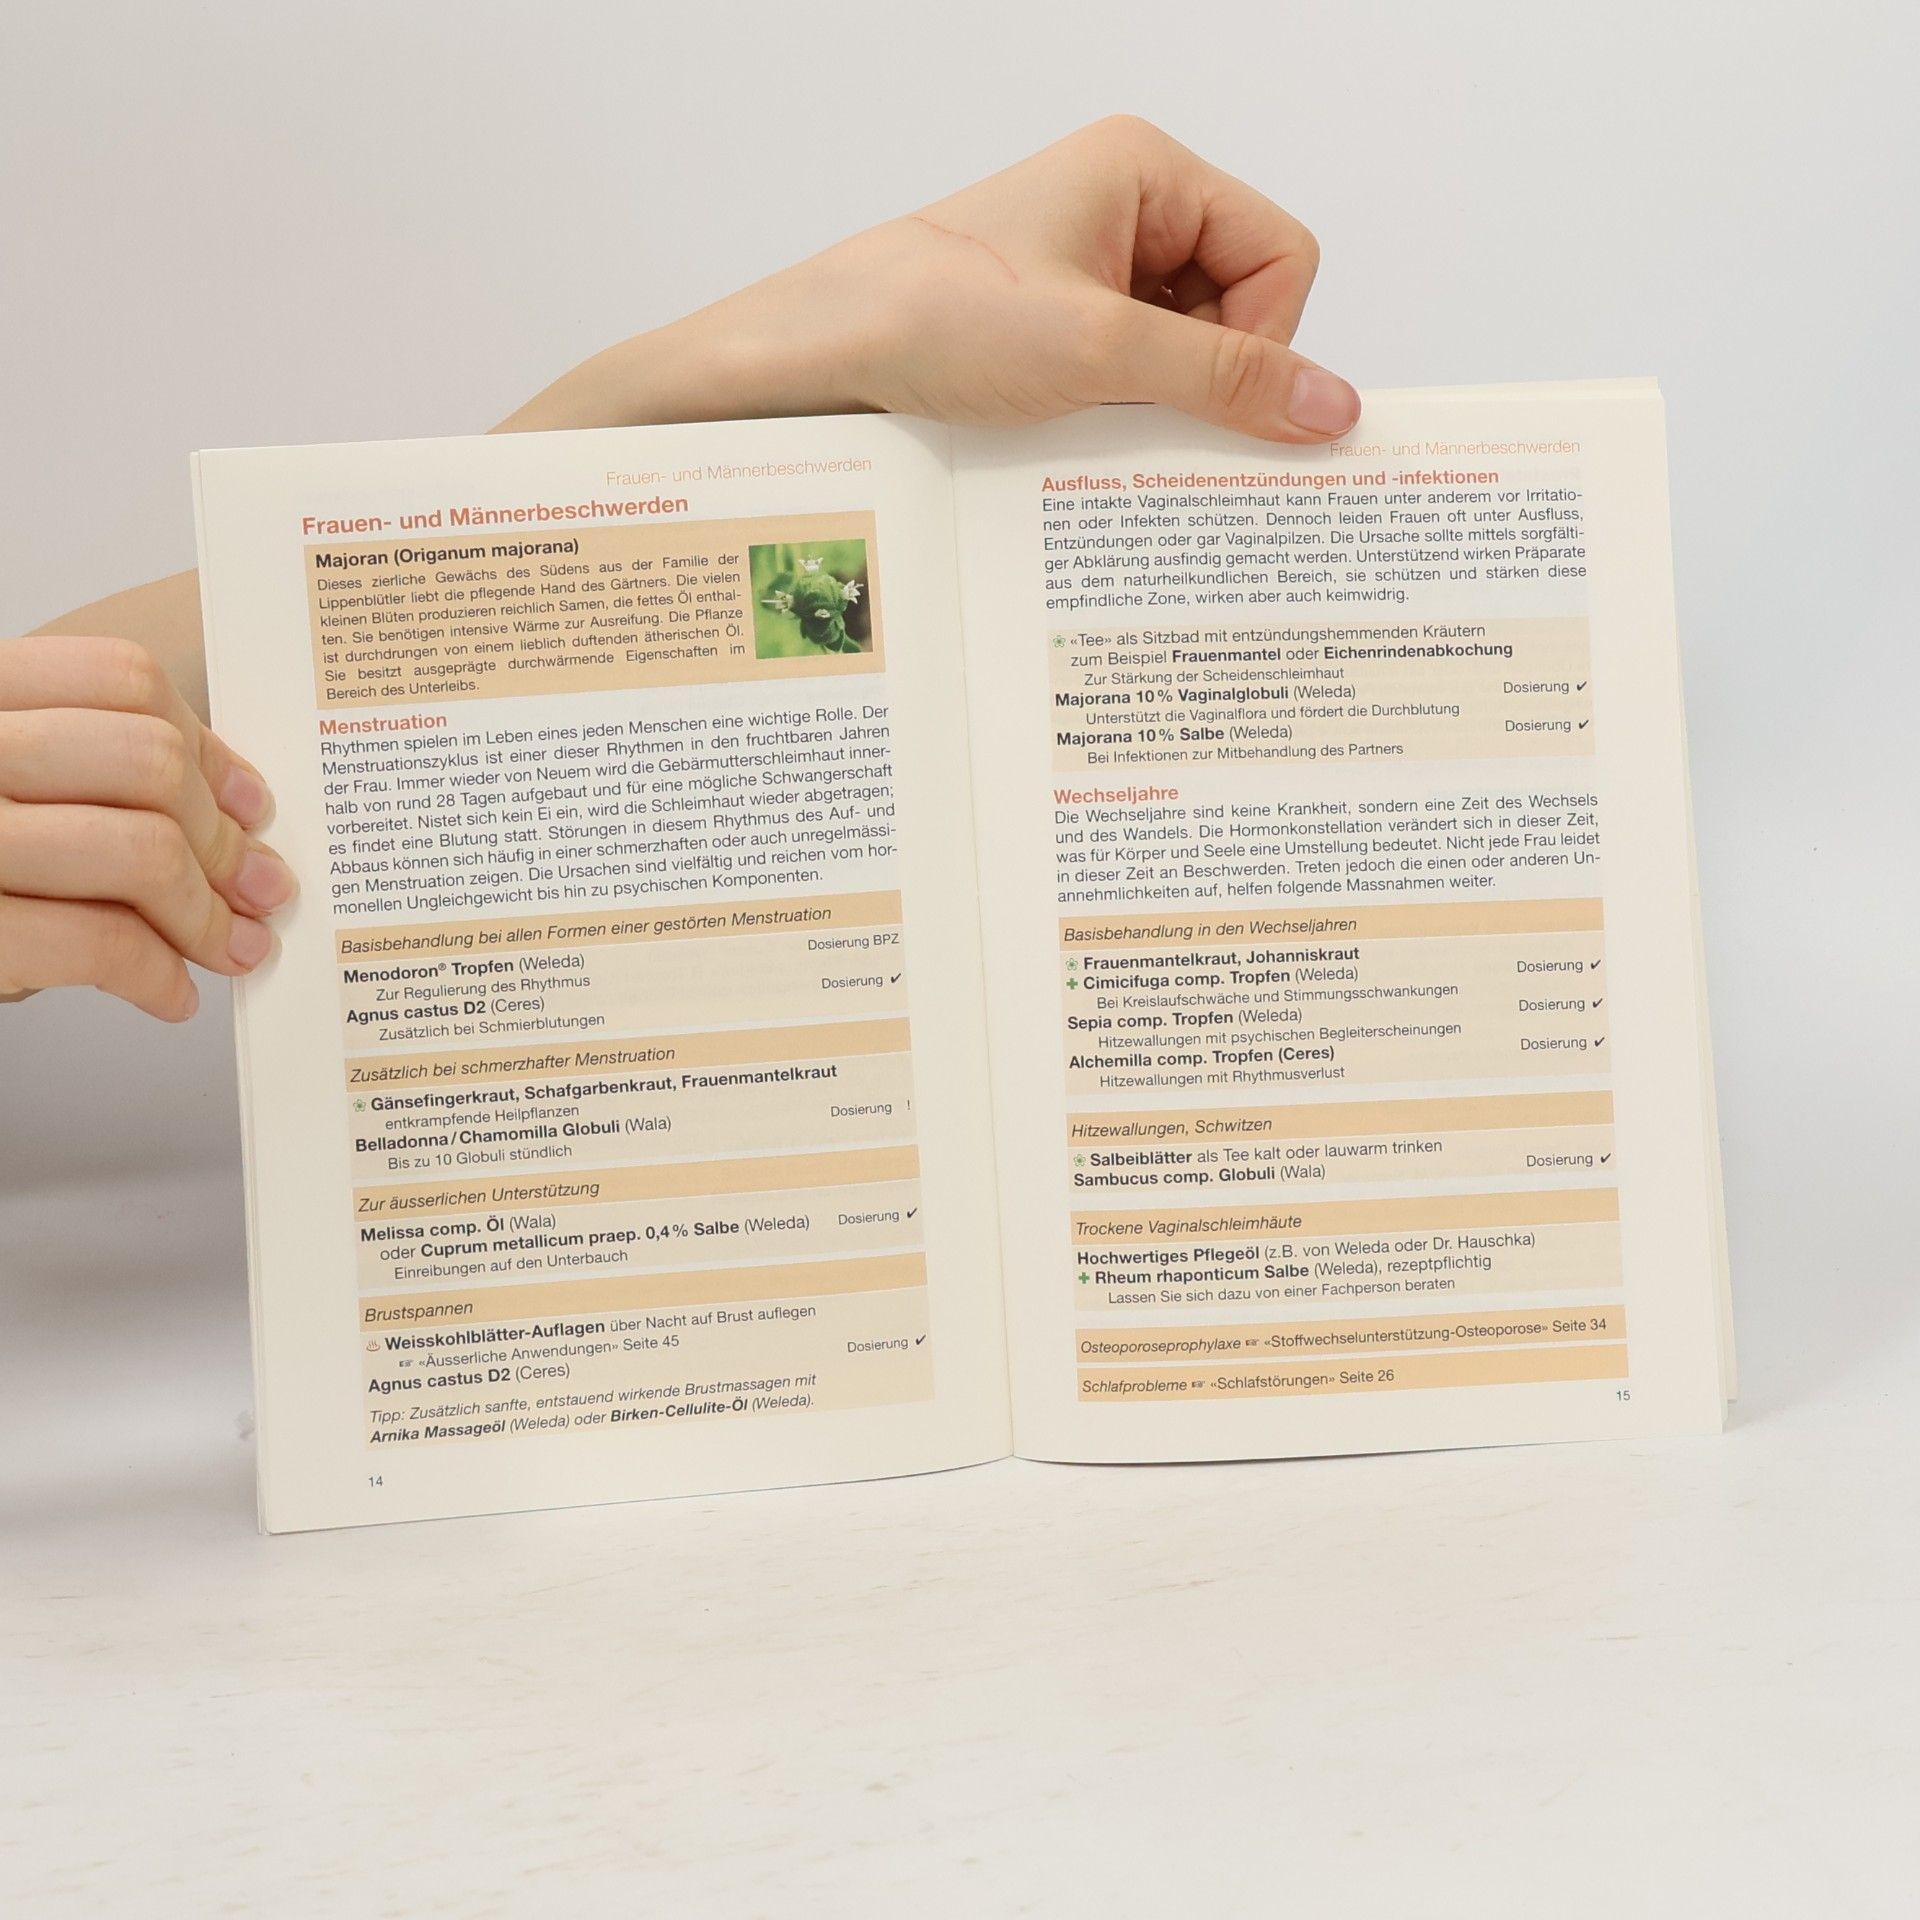 Frauen- und Männerbeschwerden
Frauen- und Männerbeschwerden
Majoran (Origanum majorana)
Dieses zierliche Gewächs des Südens aus der Familie der
Lippenblütler liebt die pflegende Hand des Gärtners. Die vielen
kleinen Blüten produzieren reichlich Samen, die fettes Öl enthal-
ten. Sie benötigen intensive Wärme zur Ausreifung. Die Pflanze
ist durchdrungen von einem lieblich duftenden ätherischen Öl.
Sie besitzt ausgeprägte durchwärmende Eigenschaften im
Bereich des Unterleibs.
Menstruation
Rhythmen spielen im Leben eines jeden Menschen eine wichtige Rolle. Der
Menstruationszyklus ist einer dieser Rhythmen in den fruchtbaren Jahren
der Frau. Immer wieder von Neuem wird die Gebärmutterschleimhaut inner-
halb von rund 28 Tagen aufgebaut und für eine mögliche Schwangerschaft
vorbereitet. Nistet sich kein Ei ein, wird die Schleimhaut wieder abgetragen;
es findet eine Blutung statt. Störungen in diesem Rhythmus des Auf- und
Abbaus können sich häufig in einer schmerzhaften oder auch unregelmässi-
gen Menstruation zeigen. Die Ursachen sind vielfältig und reichen vom hor-
monellen Ungleichgewicht bis hin zu psychischen Komponenten.
Basisbehandlung bei allen Formen einer gestörten Menstruation
Menodoron® Tropfen (Weleda) Dosierung BPZ
Zur Regulierung des Rhythmus
Agnus castus D2 (Ceres) Dosierung ✔
Zusätzlich bei Schmierblutungen
Zusätzlich bei schmerzhafter Menstruation
Gänsefingerkraut, Schafgarbenkraut, Frauenmantelkraut
entkrampfende Heilpflanzen
Belladonna/Chamomilla Globuli (Wala) Dosierung !
Bis zu 10 Globuli stündlich
Zur äusserlichen Unterstützung
Melissa comp. Öl (Wala)
oder Cuprum metallicum praep. 0,4% Salbe (Weleda) Dosierung ✔
Einreibungen auf den Unterbauch
Brustspannen
Weisskohlblätter-Auflagen über Nacht auf Brust auflegen
☞ «Äusserliche Anwendungen» Seite 45
Agnus castus D2 (Ceres) Dosierung ✔
Tipp: Zusätzlich sanfte, entstauend wirkende Brustmassagen mit
Arnika Massageöl (Weleda) oder Birken-Cellulite-Öl (Weleda).
14
Frauen- und Männerbeschwerden
Ausfluss, Scheidenentzündungen und -infektionen
Eine intakte Vaginalschleimhaut kann Frauen unter anderem vor Irritatio-
nen oder Infekten schützen. Dennoch leiden Frauen oft unter Ausfluss,
Entzündungen oder gar Vaginalpilzen. Die Ursache sollte mittels sorgfälti-
ger Abklärung ausfindig gemacht werden. Unterstützend wirken Präparate
aus dem naturheilkundlichen Bereich, sie schützen und stärken diese
empfindliche Zone, wirken aber auch keimwidrig.
«Tee» als Sitzbad mit entzündungshemmenden Kräutern
zum Beispiel Frauenmantel oder Eichenrindenabkochung
Zur Stärkung der Scheidenschleimhaut
Majorana 10% Vaginalglobuli (Weleda) Dosierung ✔
Unterstützt die Vaginalflora und fördert die Durchblutung
Majorana 10% Salbe (Weleda) Dosierung ✔
Bei Infektionen zur Mitbehandlung des Partners
Wechseljahre
Die Wechseljahre sind keine Krankheit, sondern eine Zeit des Wechsels
und des Wandels. Die Hormonkonstellation verändert sich in dieser Zeit,
was für Körper und Seele eine Umstellung bedeutet. Nicht jede Frau leidet
in dieser Zeit an Beschwerden. Treten jedoch die einen oder anderen Un-
annehmlichkeiten auf, helfen folgende Massnahmen weiter.
Basisbehandlung in den Wechseljahren
Frauenmantelkraut, Johanniskraut
+ Cimicifuga comp. Tropfen (Weleda) Dosierung ✔
Bei Kreislaufschwäche und Stimmungsschwankungen
Sepia comp. Tropfen (Weleda) Dosierung ✔
Hitzewallungen mit psychischen Begleiterscheinungen
Alchemilla comp. Tropfen (Ceres) Dosierung ✔
Hitzewallungen mit Rhythmusverlust
Hitzewallungen, Schwitzen
Salbeiblätter als Tee kalt oder lauwarm trinken
Sambucus comp. Globuli (Wala) Dosierung ✔
Trockene Vaginalschleimhäute
Hochwertiges Pflegeöl (z.B. von Weleda oder Dr. Hauschka)
+ Rheum rhaponticum Salbe (Weleda), rezeptpflichtig
Lassen Sie sich dazu von einer Fachperson beraten
Osteoporoseprophylaxe ☞ «Stoffwechselunterstützung-Osteoporose» Seite 34
Schlafprobleme ☞ «Schlafstörungen» Seite 26
15